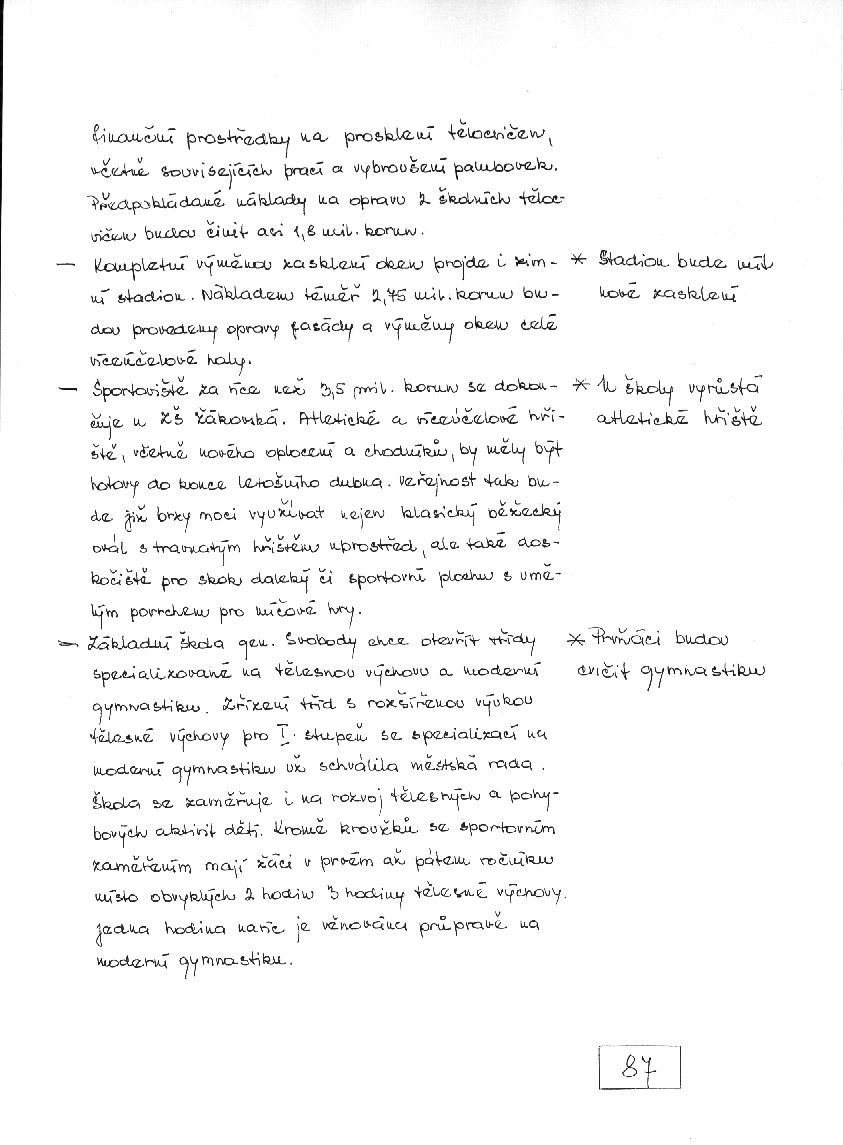 finanční prostředky na prosklení tělocvičen,
včetně souvisejících prací a vybroušení palubovek.
Předpokládané náklady na opravu 2 školních těloc-
vičen budou činit asi 1,8 mil. korun.
— Kompletní výměnou zasklení oken projde i zim-
ní stadion. Nákladem téměř 2,75 mil. korun bu-
dou provedeny opravy fasády a výměny oken celé
víceúčelové haly.
* Stadion bude mít
nové zasklení
— Sportoviště za více než 3,5 mil. korun se dokon-
čuje u ZŠ Žákovská. Atletické a víceúčelové hři-
ště, včetně nového oplocení a chodníků, by měly být
hotovy do konce letošního dubna. Veřejnost tak bu-
de již brzy moci využívat nejen klasický běžecký
ovál s travnatým hřištěm uprostřed, ale také dos-
kočiště pro skok daleký či sportovní plochu s umě-
lým povrchem pro míčové hry.
* U školy vyrůstá
atletické hřiště
— Základní škola gen. Svobody chce otevřít třídy
specializované na tělesnou výchovu a moderní
gymnastiku. Zřízení tříd s rozšířenou výukou
tělesné výchovy pro I. stupeň se specializací na
moderní gymnastiku už schválila městská rada.
Škola se zaměřuje i na rozvoj tělesných a pohy-
bových aktivit dětí. Kromě kroužků se sportovním
zaměřením mají žáci v prvém až pátém ročníku
místo obvyklých 2 hodin 3 hodiny tělesné výchovy.
Jedna hodina navíc je věnována průpravě na
moderní gymnastiku.
* Prvňáci budou
cvičit gymnastiku
87